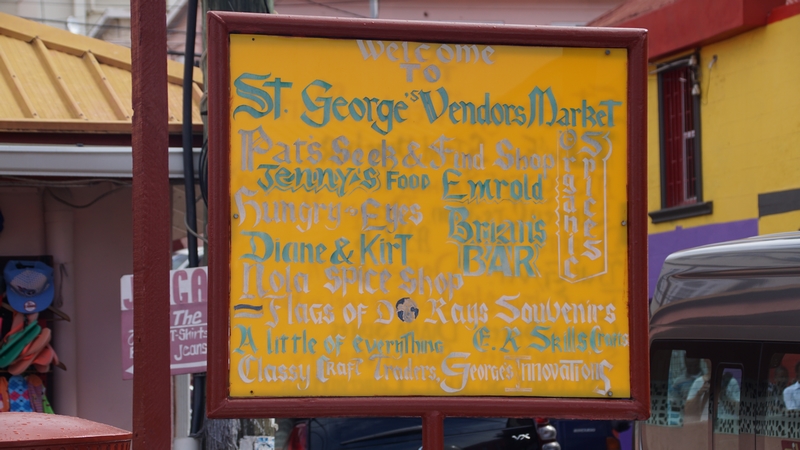 Welcome
TO
St. George's Vendors Market
Pats Seek & Find Shop
Organic Spices
Jenny's Food Emrold
Hungry-Eyes Brian's
Diane & Kirt BAR
Nola Spice Shop
Flags of D Rays Souvenirs
A little of everything E. R Skills Crafts
Classy Craft Traders, George's Innovations
CA
The
T-Shirts
Jeans
VX